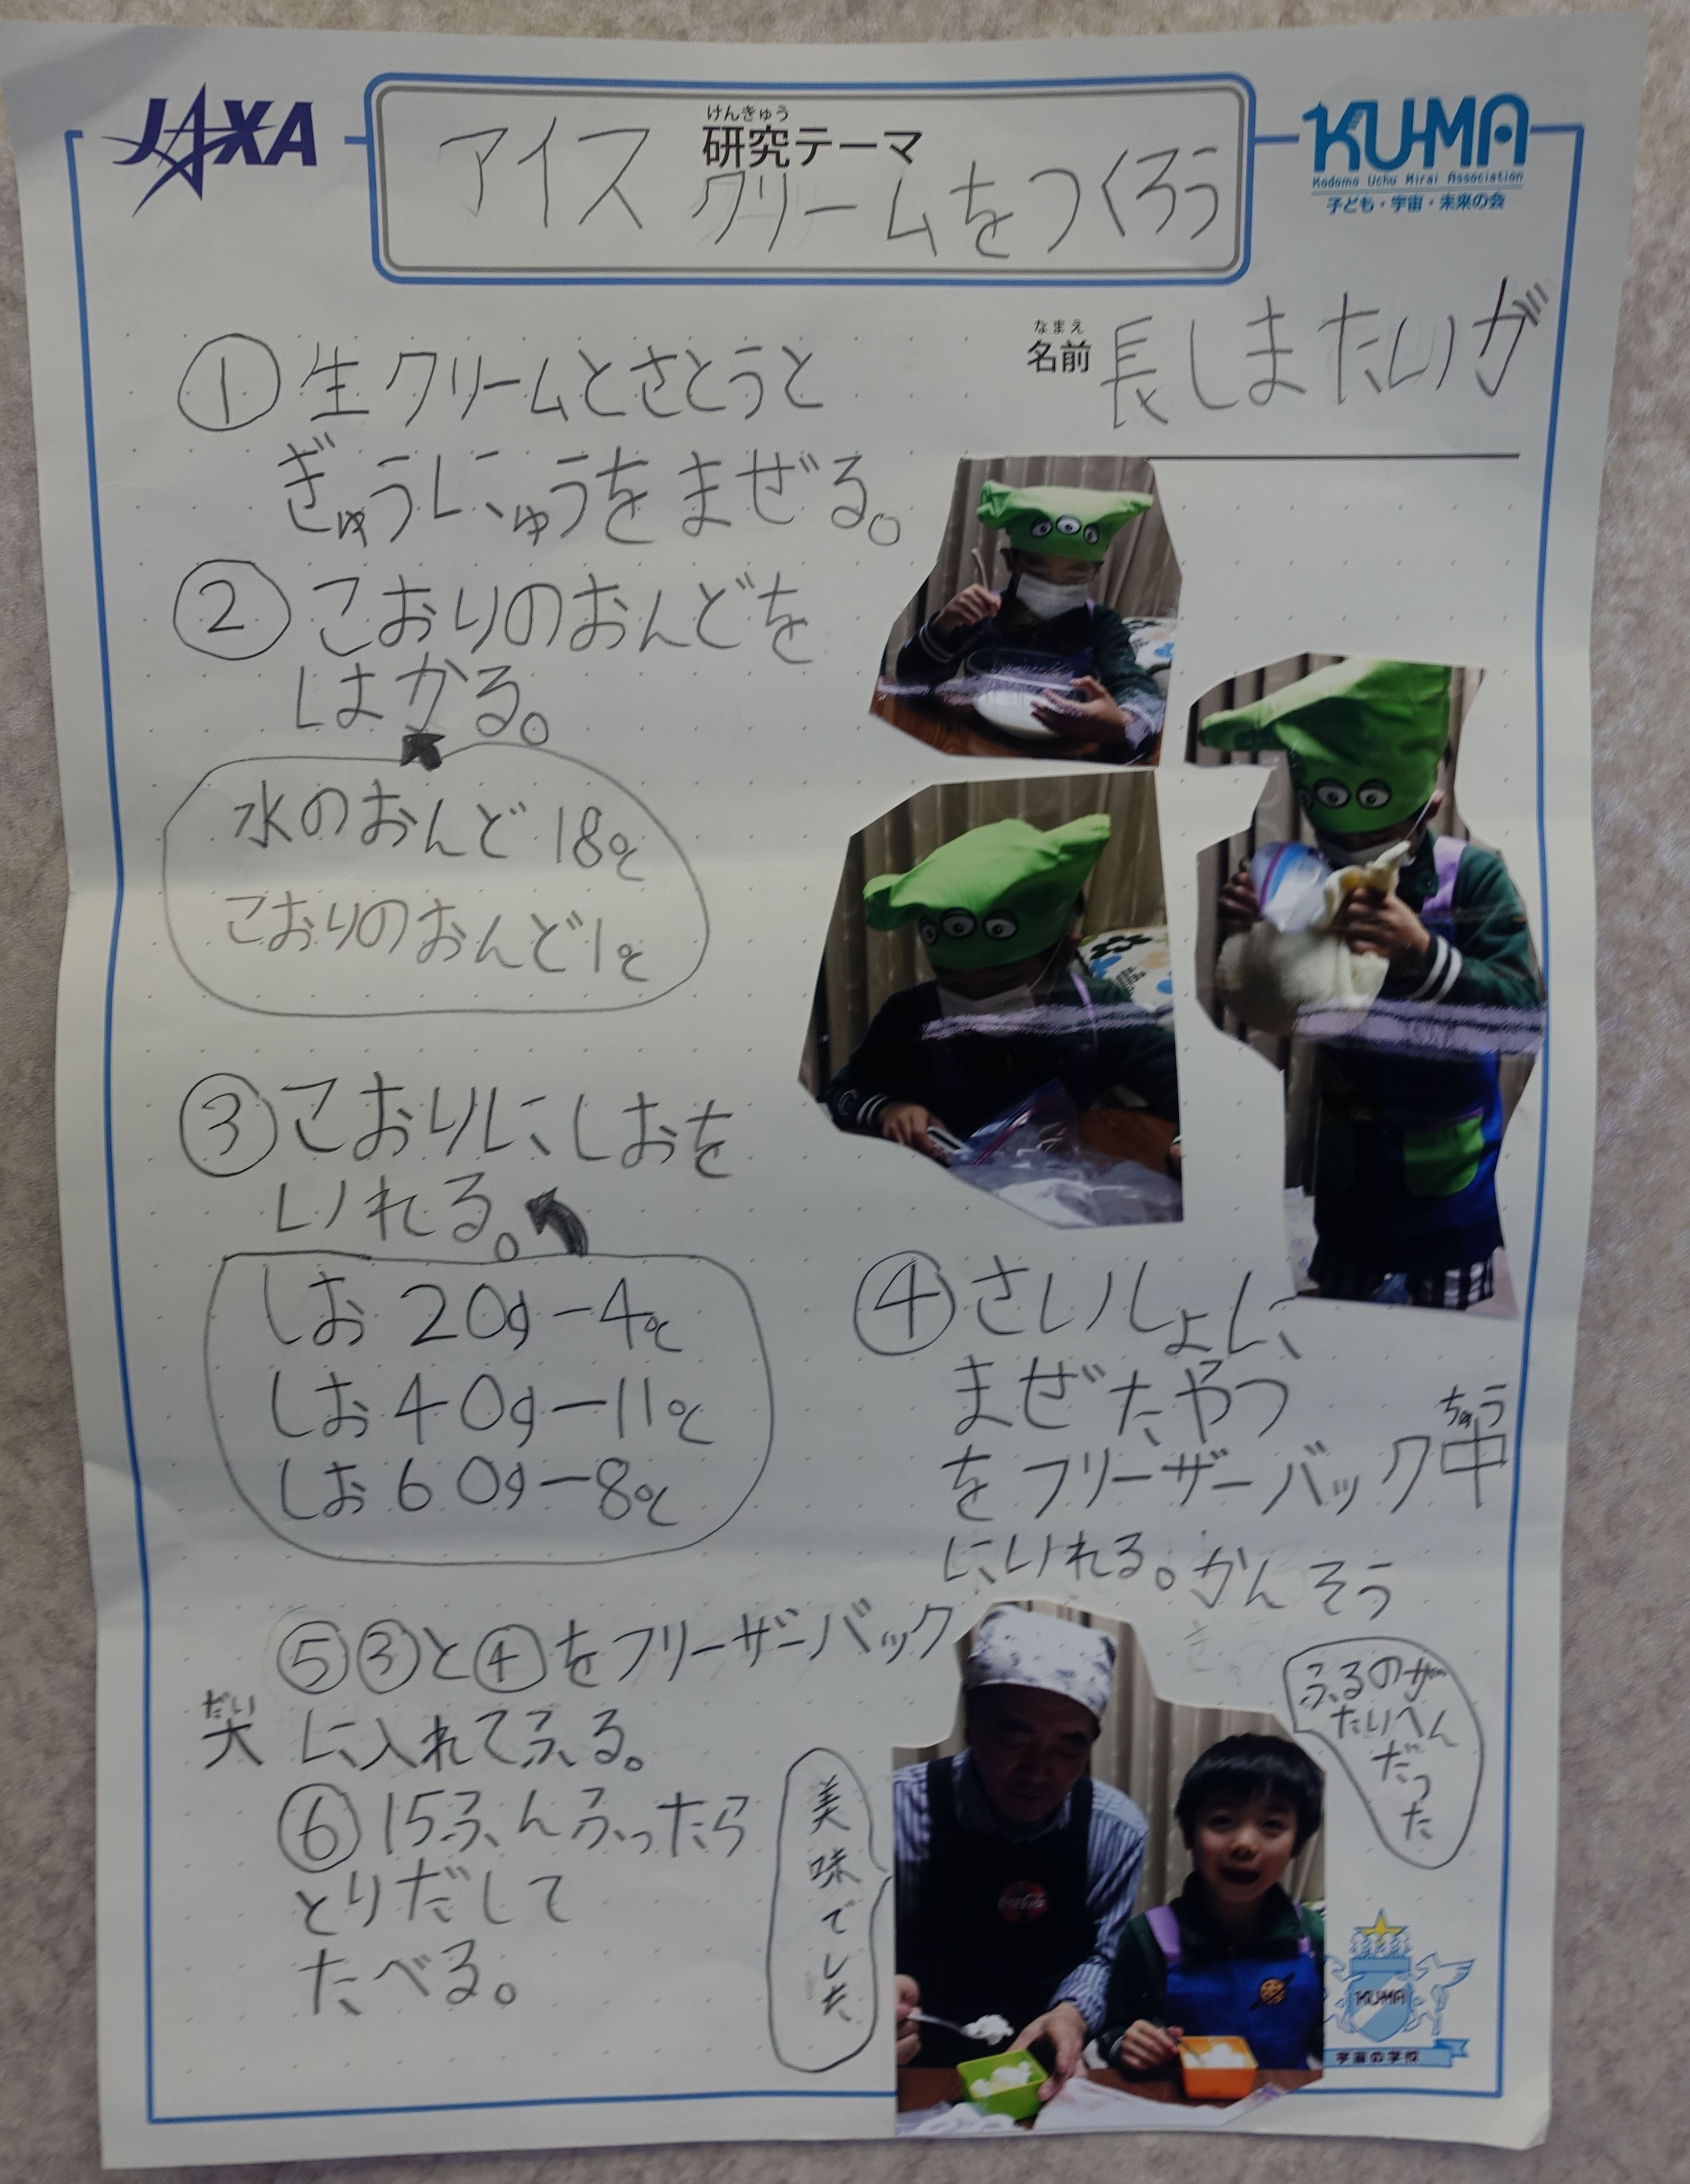 JAXA
けんきゅう
研究テーマ
アイスクリームをつくろう
KU-MA
Kodomo Uchu Mirai Association
子ども・宇宙・未来の会
なまえ
名前 長しまたいが
① 生クリームとさとうと
ぎゅうにゅうをまぜる。
② こおりのおんどを
はかる。
水のおんど 18℃
こおりのおんど1℃
③ こおりにしおを
いれる。
しお 20g-4℃
しお 40g-11℃
しお 60g-8℃
④ さいしょに
まぜたやつ
ちゅう
をフリーザーバック中
にいれる。
⑤③と④をフリーザーバック
だい
大 に入れてふる。
⑥ 15ふんふったら
とりだして
たべる。
かんそう
美味でした
ふるのが
たいへん
だっ
た
Coca-Cola
KUMA
宇宙の学校